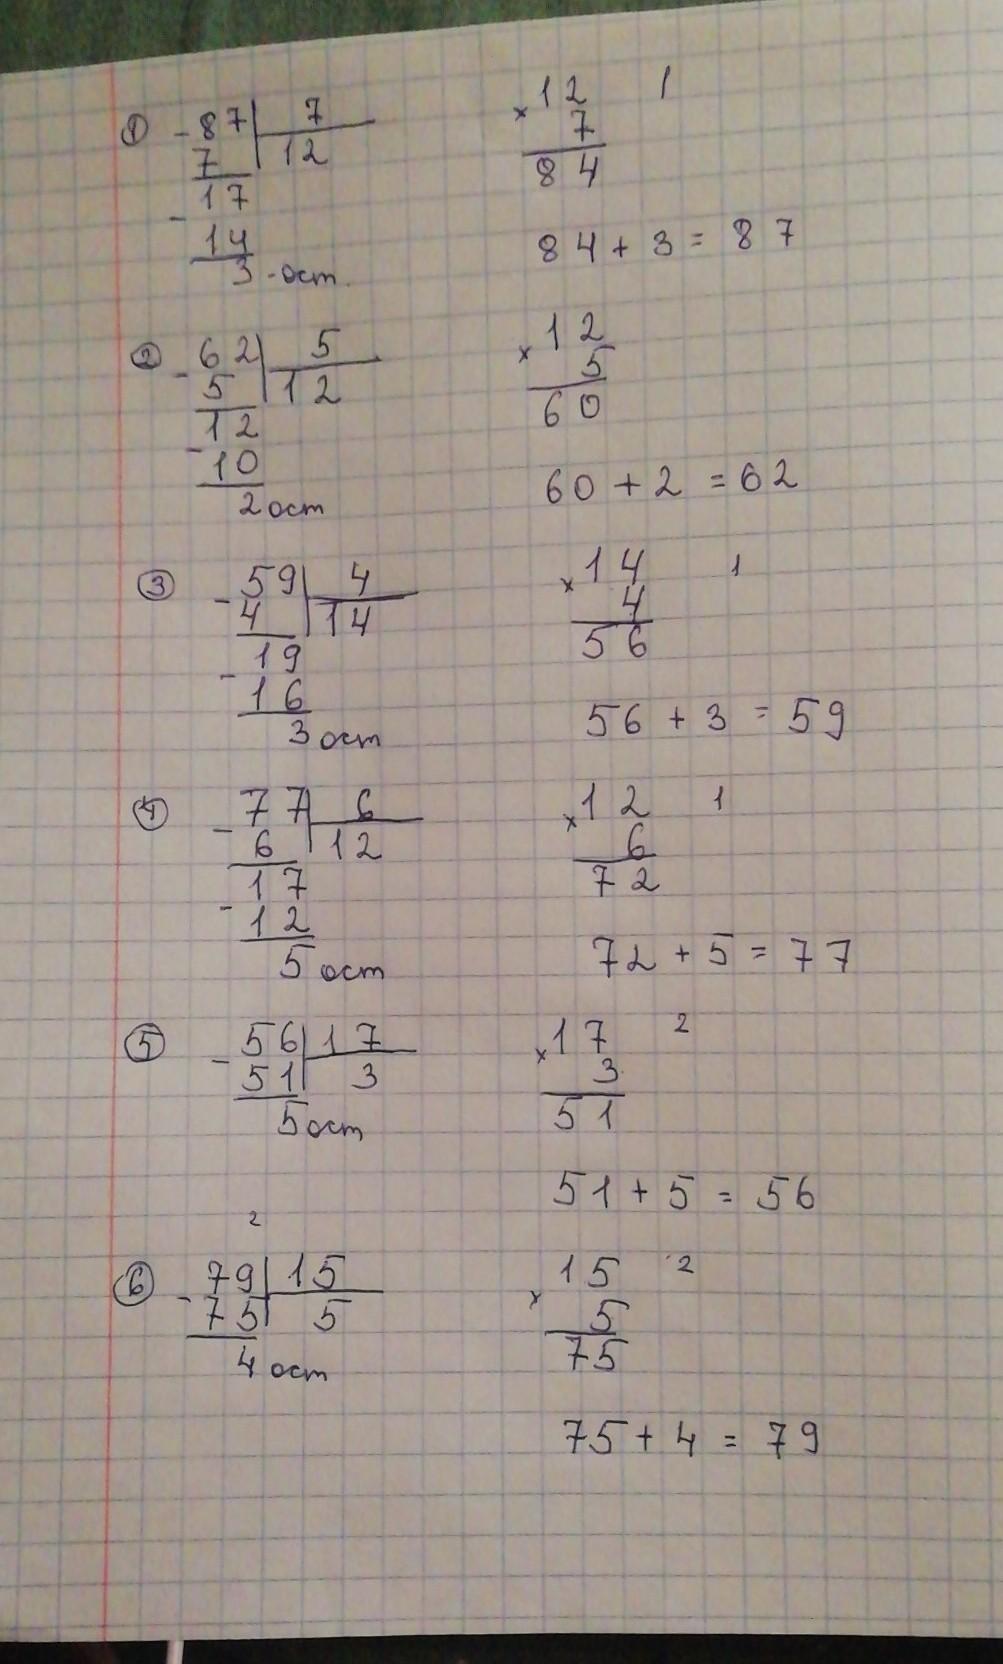 ① - 87 | 7
7 | 12
17
- 14
3 - ост.
× 12 1
7
84
84 + 3 = 87
② - 62 | 5
5 | 12
12
- 10
2 ост
× 12
5
60
60 + 2 = 62
③ - 59 | 4
4 | 14
19
- 16
3 ост
× 14 1
4
56
56 + 3 = 59
④ - 77 | 6
6 | 12
17
- 12
5 ост
× 12 1
6
72
72 + 5 = 77
⑤ - 56 | 17
51 | 3
5 ост
× 17 2
3
51
51 + 5 = 56
2
⑥ - 79 | 15
75 | 5
4 ост
× 15 2
5
75
75 + 4 = 79